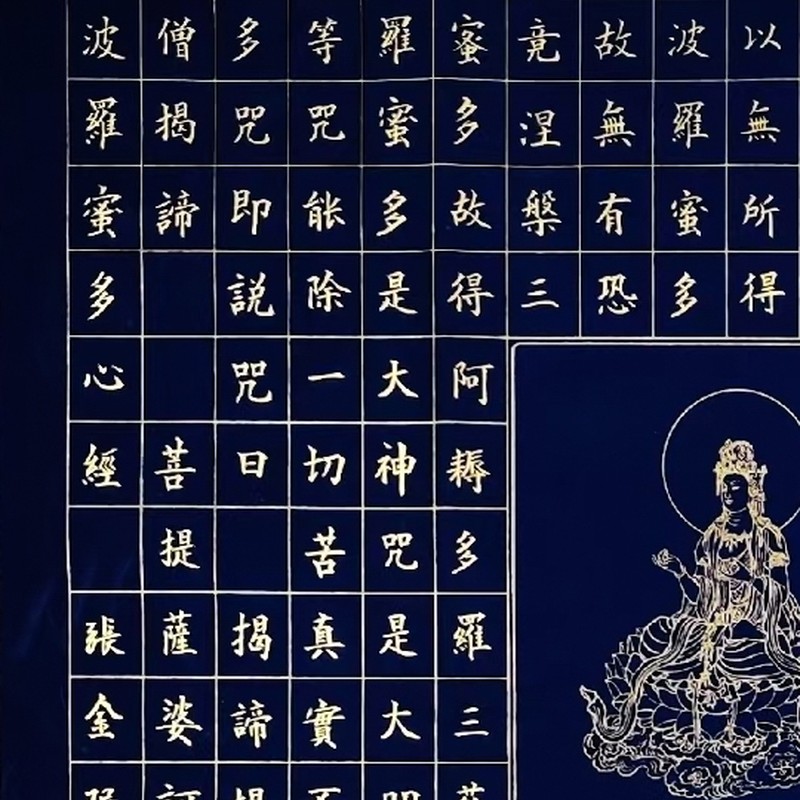 以無所得
波羅蜜多
故無有恐
竟涅槃三
蜜多故得阿耨多羅三
羅蜜多是大神咒是大
等咒能除一切苦真實
多咒即説咒曰 揭諦
僧揭諦 菩提薩婆
波羅蜜多心經 張金